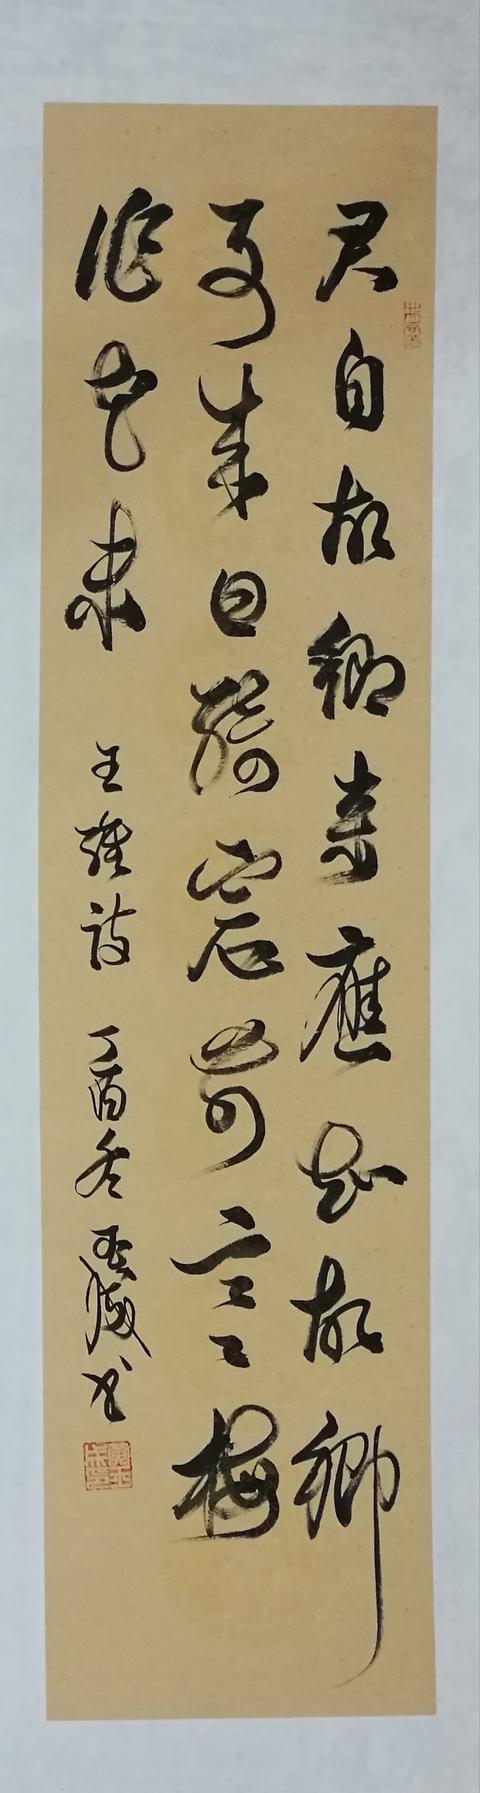 君自故鄉来應知故鄉
事来日綺窗前寒梅
作花未 王維詩 丁酉冬 书